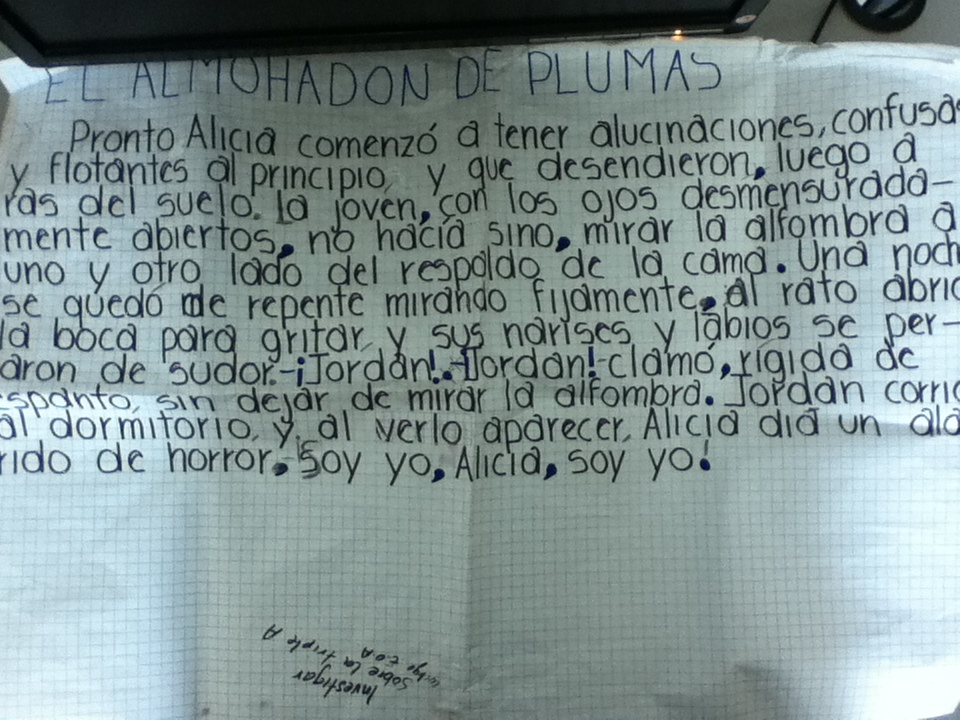 EL ALMOHADON DE PLUMAS
Pronto Alicia comenzó a tener alucinaciones, confusas
y flotantes al principio, y que desendieron, luego a
ras del suelo. la joven, con los ojos desmensurada-
mente abiertos, no hacía sino, mirar la alfombra a
uno y otro lado del respaldo de la cama. Una noch
se quedó de repente mirando fijamente, al rato abrio
la boca para gritar, y sus narises y labios se per-
aron de sudor.-¡Jordán!.-¡Jordan!-clamó, rígida de
spanto, sin dejar de mirar la alfombra. Jordán corrio
al dormitorio, y, al verlo aparecer, Alicia dia un ala
rido de horror. Soy yo, Alicia, soy yo!
Investigar
sobre la triple A